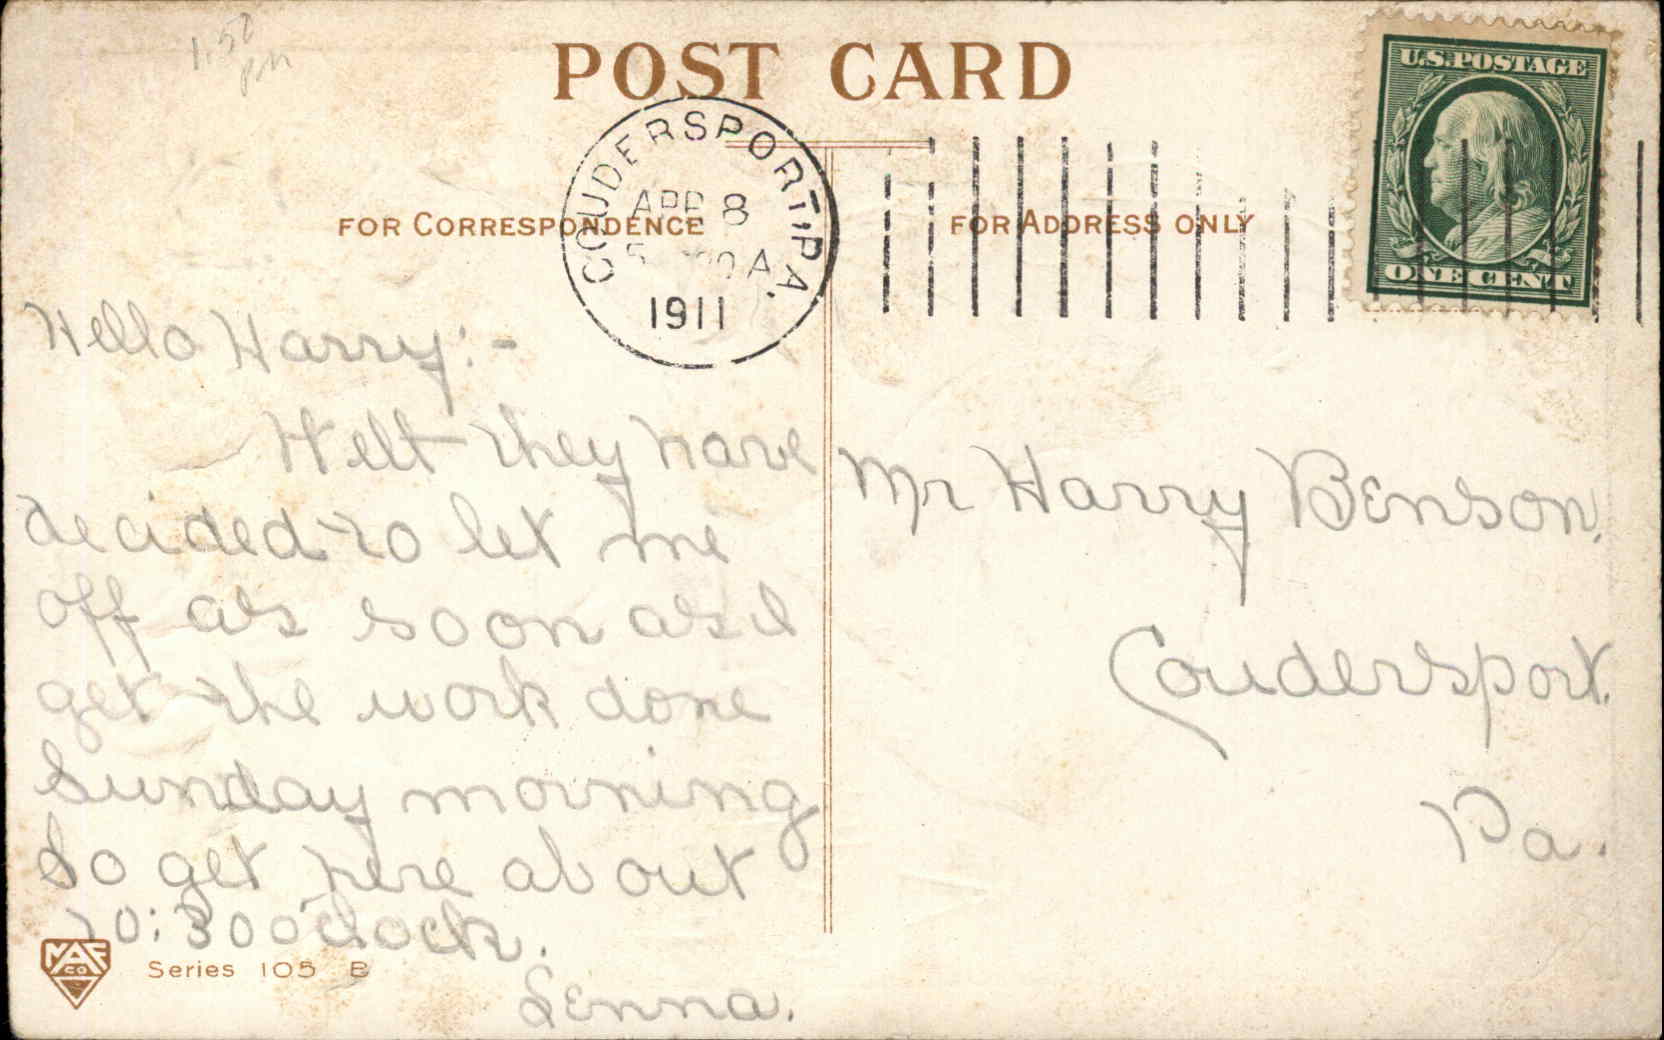 1.50
pm
POST CARD
COUDERSPORT, PA.
APR 8
A
1911
U.S. POSTAGE
ONE CENT
FOR CORRESPONDENCE
FOR ADDRESS ONLY
Hello Harry:-
Well they have
decided to let me
off as soon as I
get the work done
Sunday morning
So get here about
10:30 o'clock.
Lenna.
Mr Harry Benson,
Coudersport.
Pa.
MAF
CO
Series 105 B